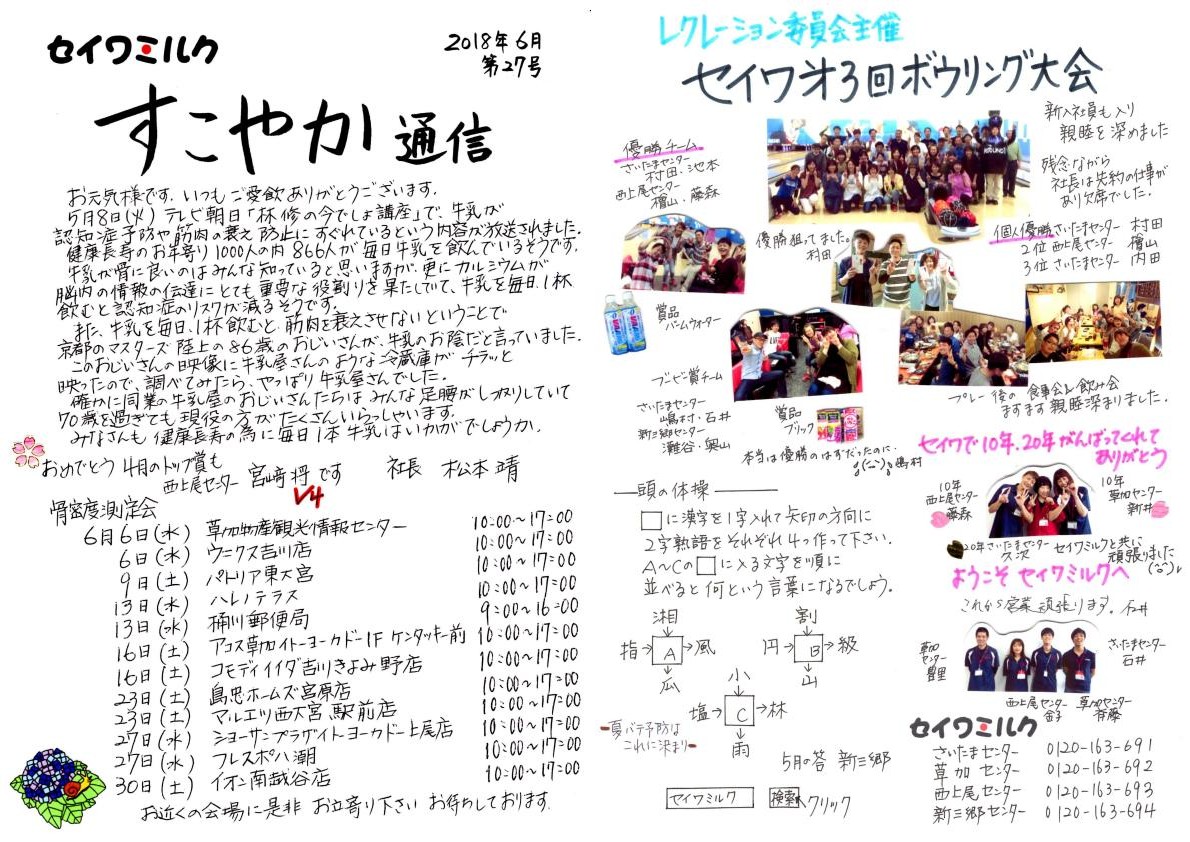 セイワミルク
2018年6月
第27号
すこやか通信
お元気様です。いつもご愛飲ありがとうございます。
5月8日(火)テレビ朝日「林修の今でしょ講座」で、牛乳が
認知症予防や筋肉の衰え防止にすぐれているという内容が放送されました。
健康長寿のお年寄り1000人の内866人が毎日牛乳を飲んでいるそうです。
牛乳が骨に良いのはみんな知っていると思いますが、更にカルシウムが
脳内の情報の伝達にとても重要な役割りを果たしていて、牛乳を毎日、1杯
飲むと認知症のリスクが減るそうです。
また、牛乳を毎日、1杯飲むと、筋肉を衰えさせないということで
京都のマスターズ陸上の86歳のおじいさんが、牛乳のお陰だと言っていました。
このおじいさんの映像に牛乳屋さんのような冷蔵庫がチラッと
映ったので、調べてみたら、やっぱり牛乳屋さんでした。
確かに同業の牛乳屋のおじいさんたちはみんな足腰がしっかりしていて
70歳を過ぎても現役の方がたくさんいらっしゃいます。
みなさんも健康長寿の為に毎日1本牛乳はいかがでしょうか。
おめでとう4月のトップ賞も
西上尾センター 宮﨑将です
V4
社長 松本靖
骨密度測定会
6月6日(水) 草加物産観光情報センター 10:00〜17:00
6日(水) ウニクス吉川店 10:00〜17:00
9日(土) パトリア東大宮 10:00〜17:00
13日(水) ハレノテラス 10:00〜17:00
13日(水) 桶川郵便局 9:00〜16:00
16日(土) アコス草加イトーヨーカドー1F ケンタッキー前 10:00〜17:00
16日(土) コモディイイダ吉川きよみ野店 10:00〜17:00
23日(土) 島忠ホームズ宮原店 10:00〜17:00
23日(土) マルエツ西大宮駅前店 10:00〜17:00
27日(水) ショーサンプラザイトーヨーカドー上尾店 10:00〜17:00
27日(水) フレスポ八潮 10:00〜17:00
30日(土) イオン南越谷店 10:00〜17:00
お近くの会場に是非お立寄り下さい お待ちしております。
レクレーション委員会主催
セイワオ3回ボウリング大会
新入社員も入り
親睦を深めました
残念ながら
社長は先約の仕事が
あり欠席でした。
優勝チーム
さいたまセンター
村田・池本
西上尾センター
檜山・藤森
優勝狙ってました。
村田
個人優勝さいたまセンター 村田
2位 西上尾センター 檜山
3位 さいたまセンター 内田
賞品
バームウォーター
ブービー賞チーム
さいたまセンター
嶋村・石井
新三郷センター
灘谷・奥山
賞品
ブリック
本当は優勝のはずだったのに・
嶋村
プレー後の食事会&飲み会
ますます親睦深まりました。
セイワで10年、20年がんばってくれて
ありがとう
10年
西上尾センター
藤森
10年
草加センター
新井
20年さいたまセンター
久次
セイワミルクと共に
頑張りました
ようこそセイワミルクへ
これから営業頑張ります。石井
草加
センター
豊里
さいたまセンター
石井
西上尾センター
金子
草加センター
斉藤
頭の体操
□に漢字を1字入れて矢印の方向に
2字熟語をそれぞれ4つ作って下さい。
A〜Cの□に入る文字を順に
並べると何という言葉になるでしょう。
湘
指→A→風
瓜
割
円→B→級
山
小
塩→C→林
雨
夏バテ予防は
これに決まり
5月の答 新三郷
セイワミルク 検索 クリック
セイワミルク
さいたまセンター 0120-163-691
草加センター 0120-163-692
西上尾センター 0120-163-693
新三郷センター 0120-163-694